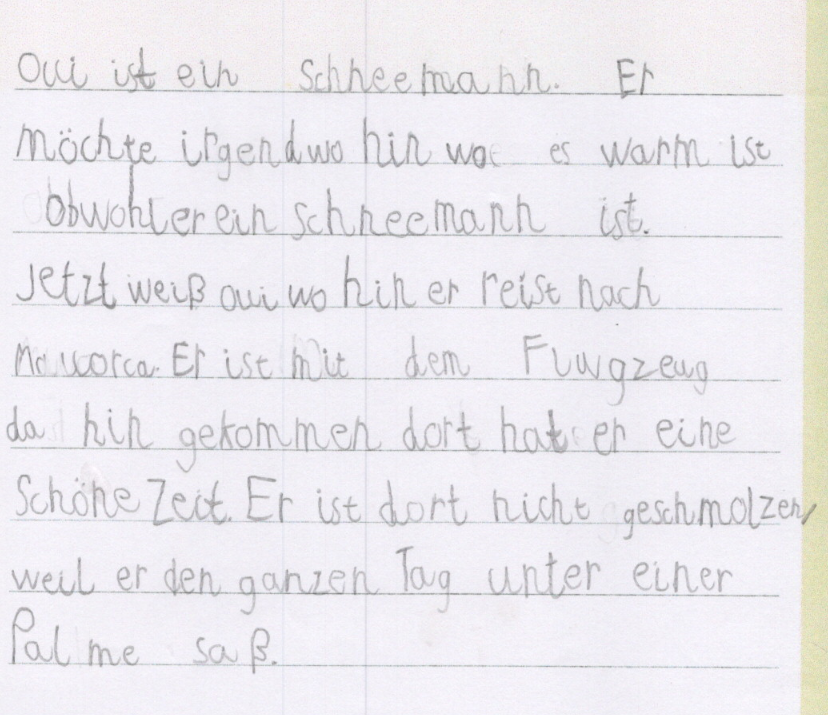 Oui ist ein Schneemann. Er
möchte irgendwo hin wo es warm ist
Obwohl er ein schneemann ist.
Jetzt weiß oui wo hin er reist nach
Mallorca. Er ist mit dem Fluugzeug
da hin gekommen dort hat er eine
Schöne Zeit. Er ist dort nicht geschmolzen,
weil er den ganzen Tag unter einer
Palme saß.